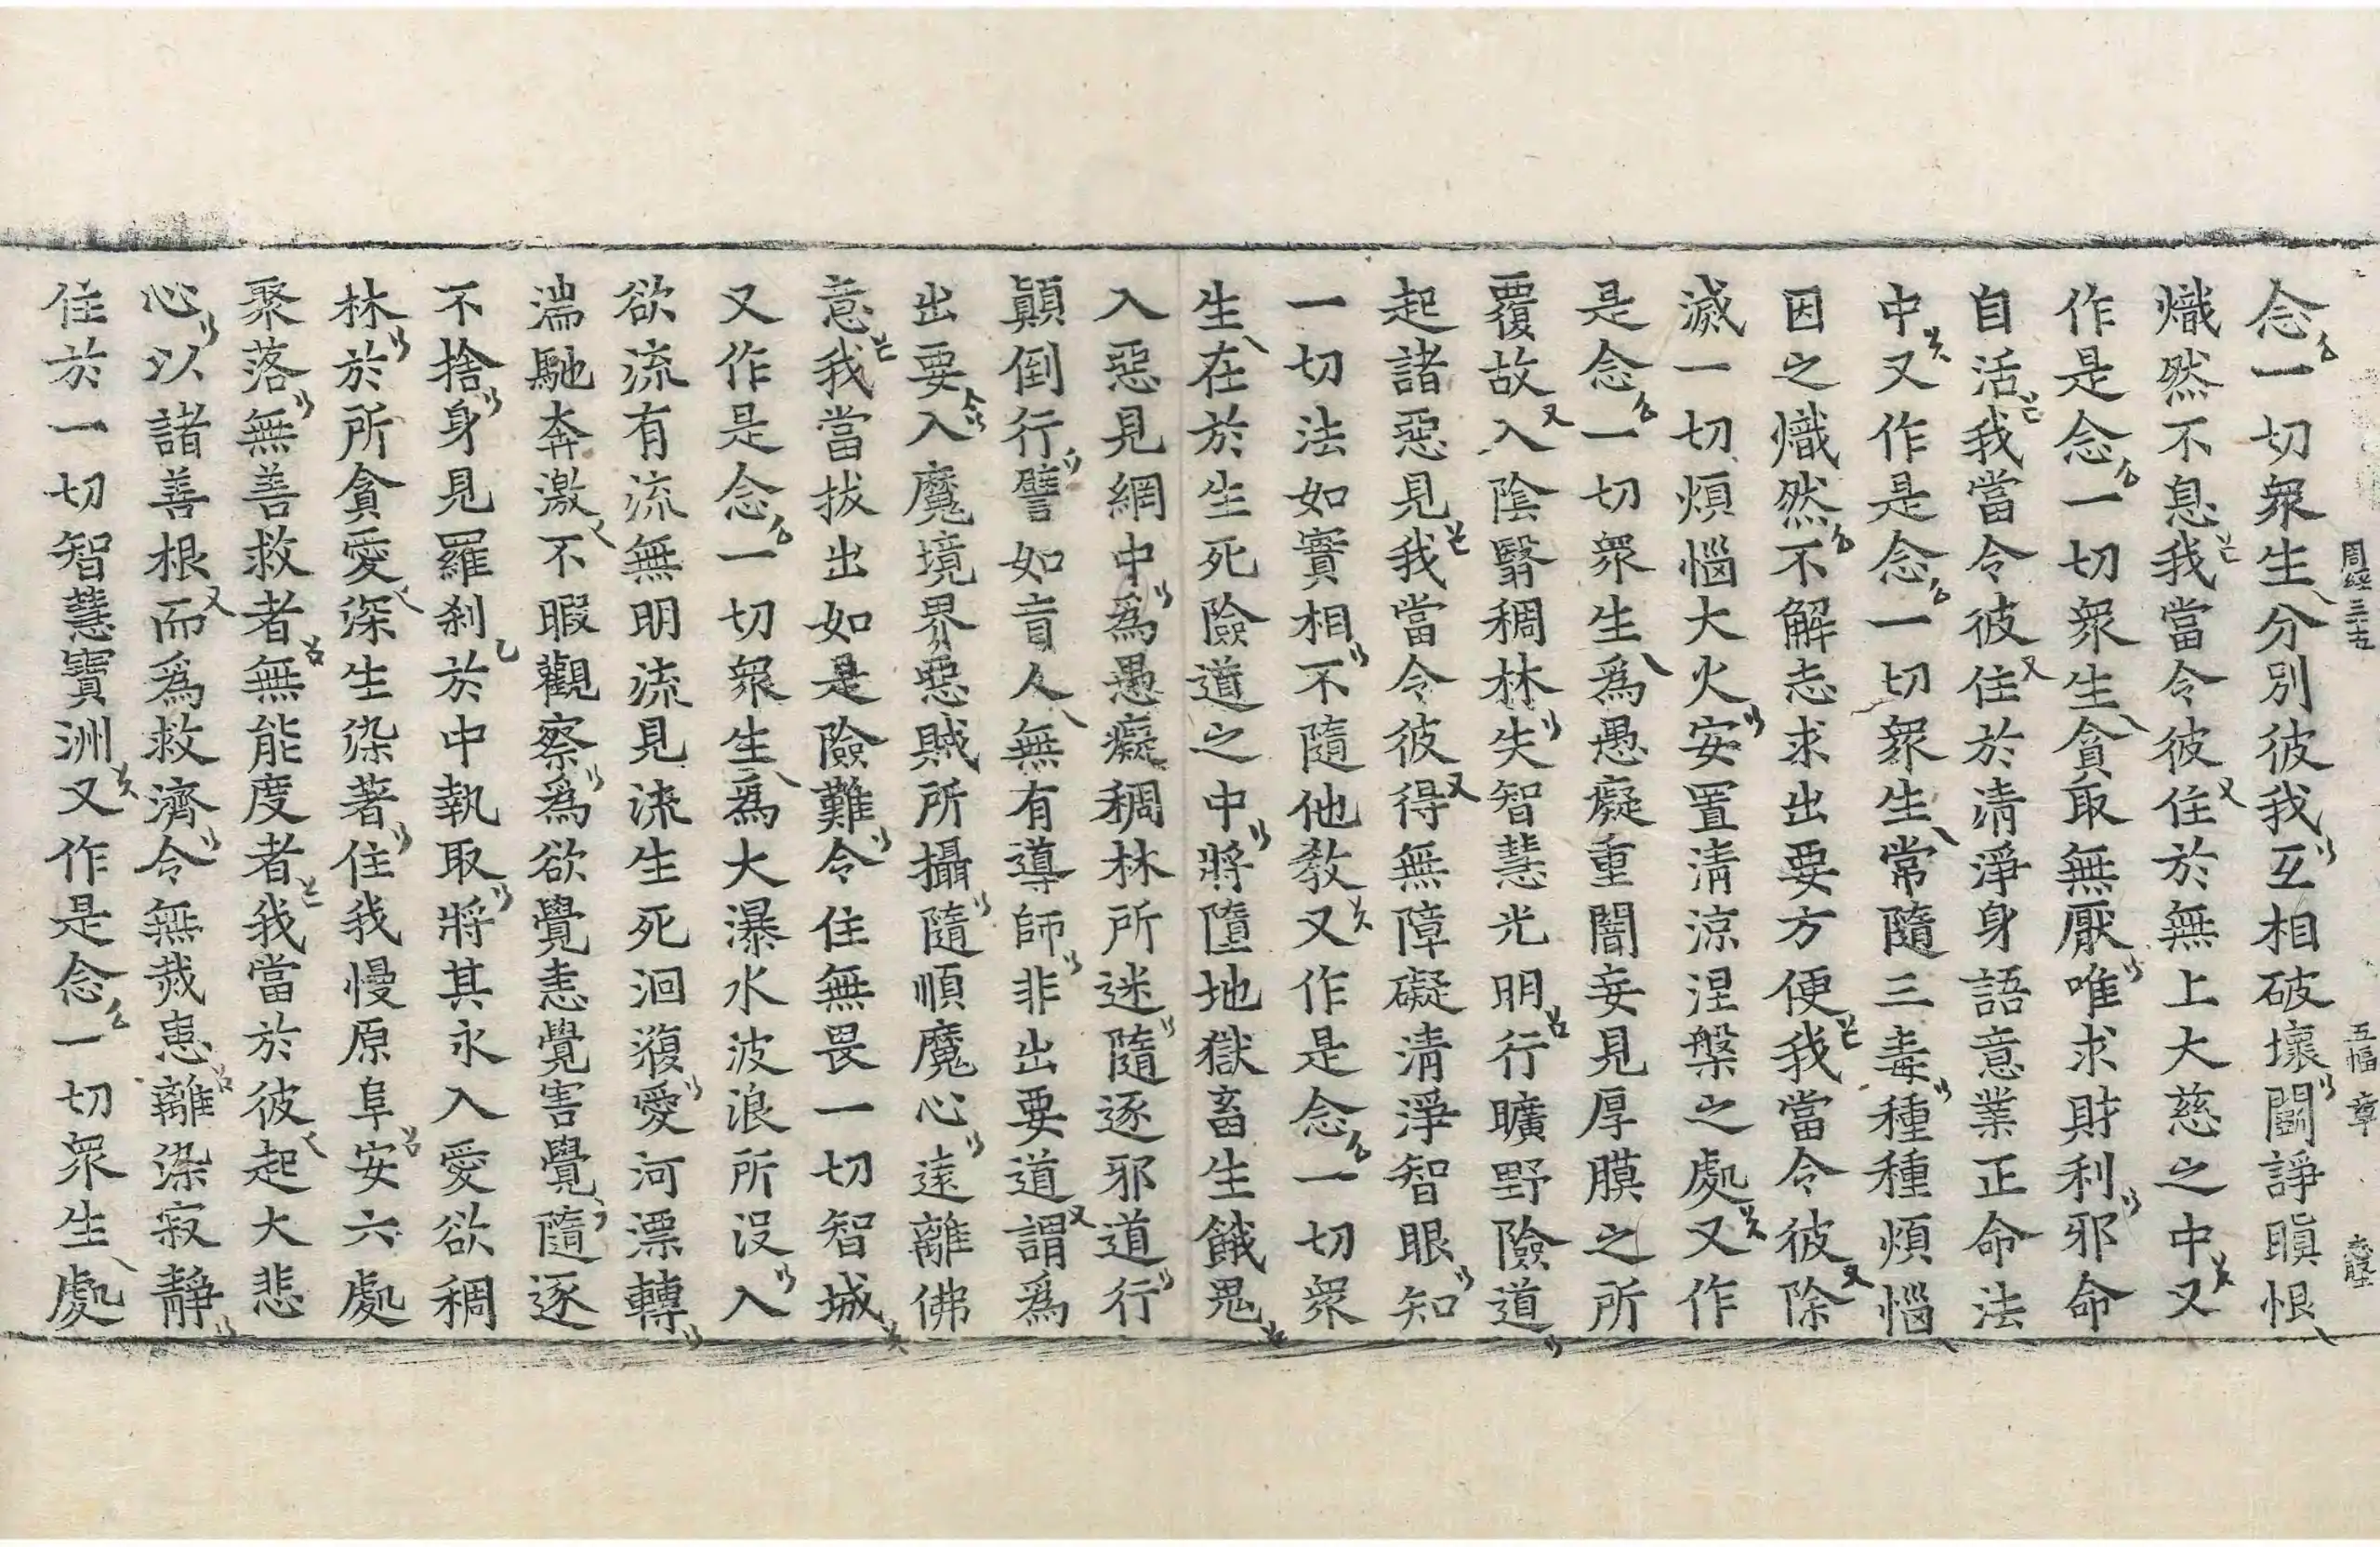 周経三十五 五幅 章
念一切衆生分別彼我互相破壞鬪諍瞋恨
熾然不息我當令彼住於無上大慈之中又
作是念一切衆生貪取無厭唯求財利邪命
自活我當令彼住於清淨身語意業正命法
中又作是念一切衆生常隨三毒種種煩惱
因之熾然不解志求出要方便我當令彼除
滅一切煩惱大火安置清涼涅槃之處又作
是念一切衆生爲愚癡重闇妄見厚膜之所
覆故入陰翳稠林失智慧光明行曠野險道
起諸惡見我當令彼得無障礙清淨智眼知
一切法如實相不隨他教又作是念一切衆
生在於生死險道之中將墮地獄畜生餓鬼
入惡見網中爲愚癡稠林所迷隨逐邪道行
顛倒行譬如盲人無有導師非出要道謂爲
出要入魔境界惡賊所攝隨順魔心遠離佛
意我當拔出如是險難令住無畏一切智城
又作是念一切衆生爲大瀑水波浪所沒入
欲流有流無明流見流生死洄澓愛河漂轉
湍馳奔激不暇觀察爲欲覺恚覺害覺隨逐
不捨身見羅刹於中執取將其永入愛欲稠
林於所貪愛深生染著住我慢原阜安六處
聚落無善救者無能度者我當於彼起大悲
心以諸善根而爲救濟令無烖患離染寂靜
住於一切智慧寶洲又作是念一切衆生處